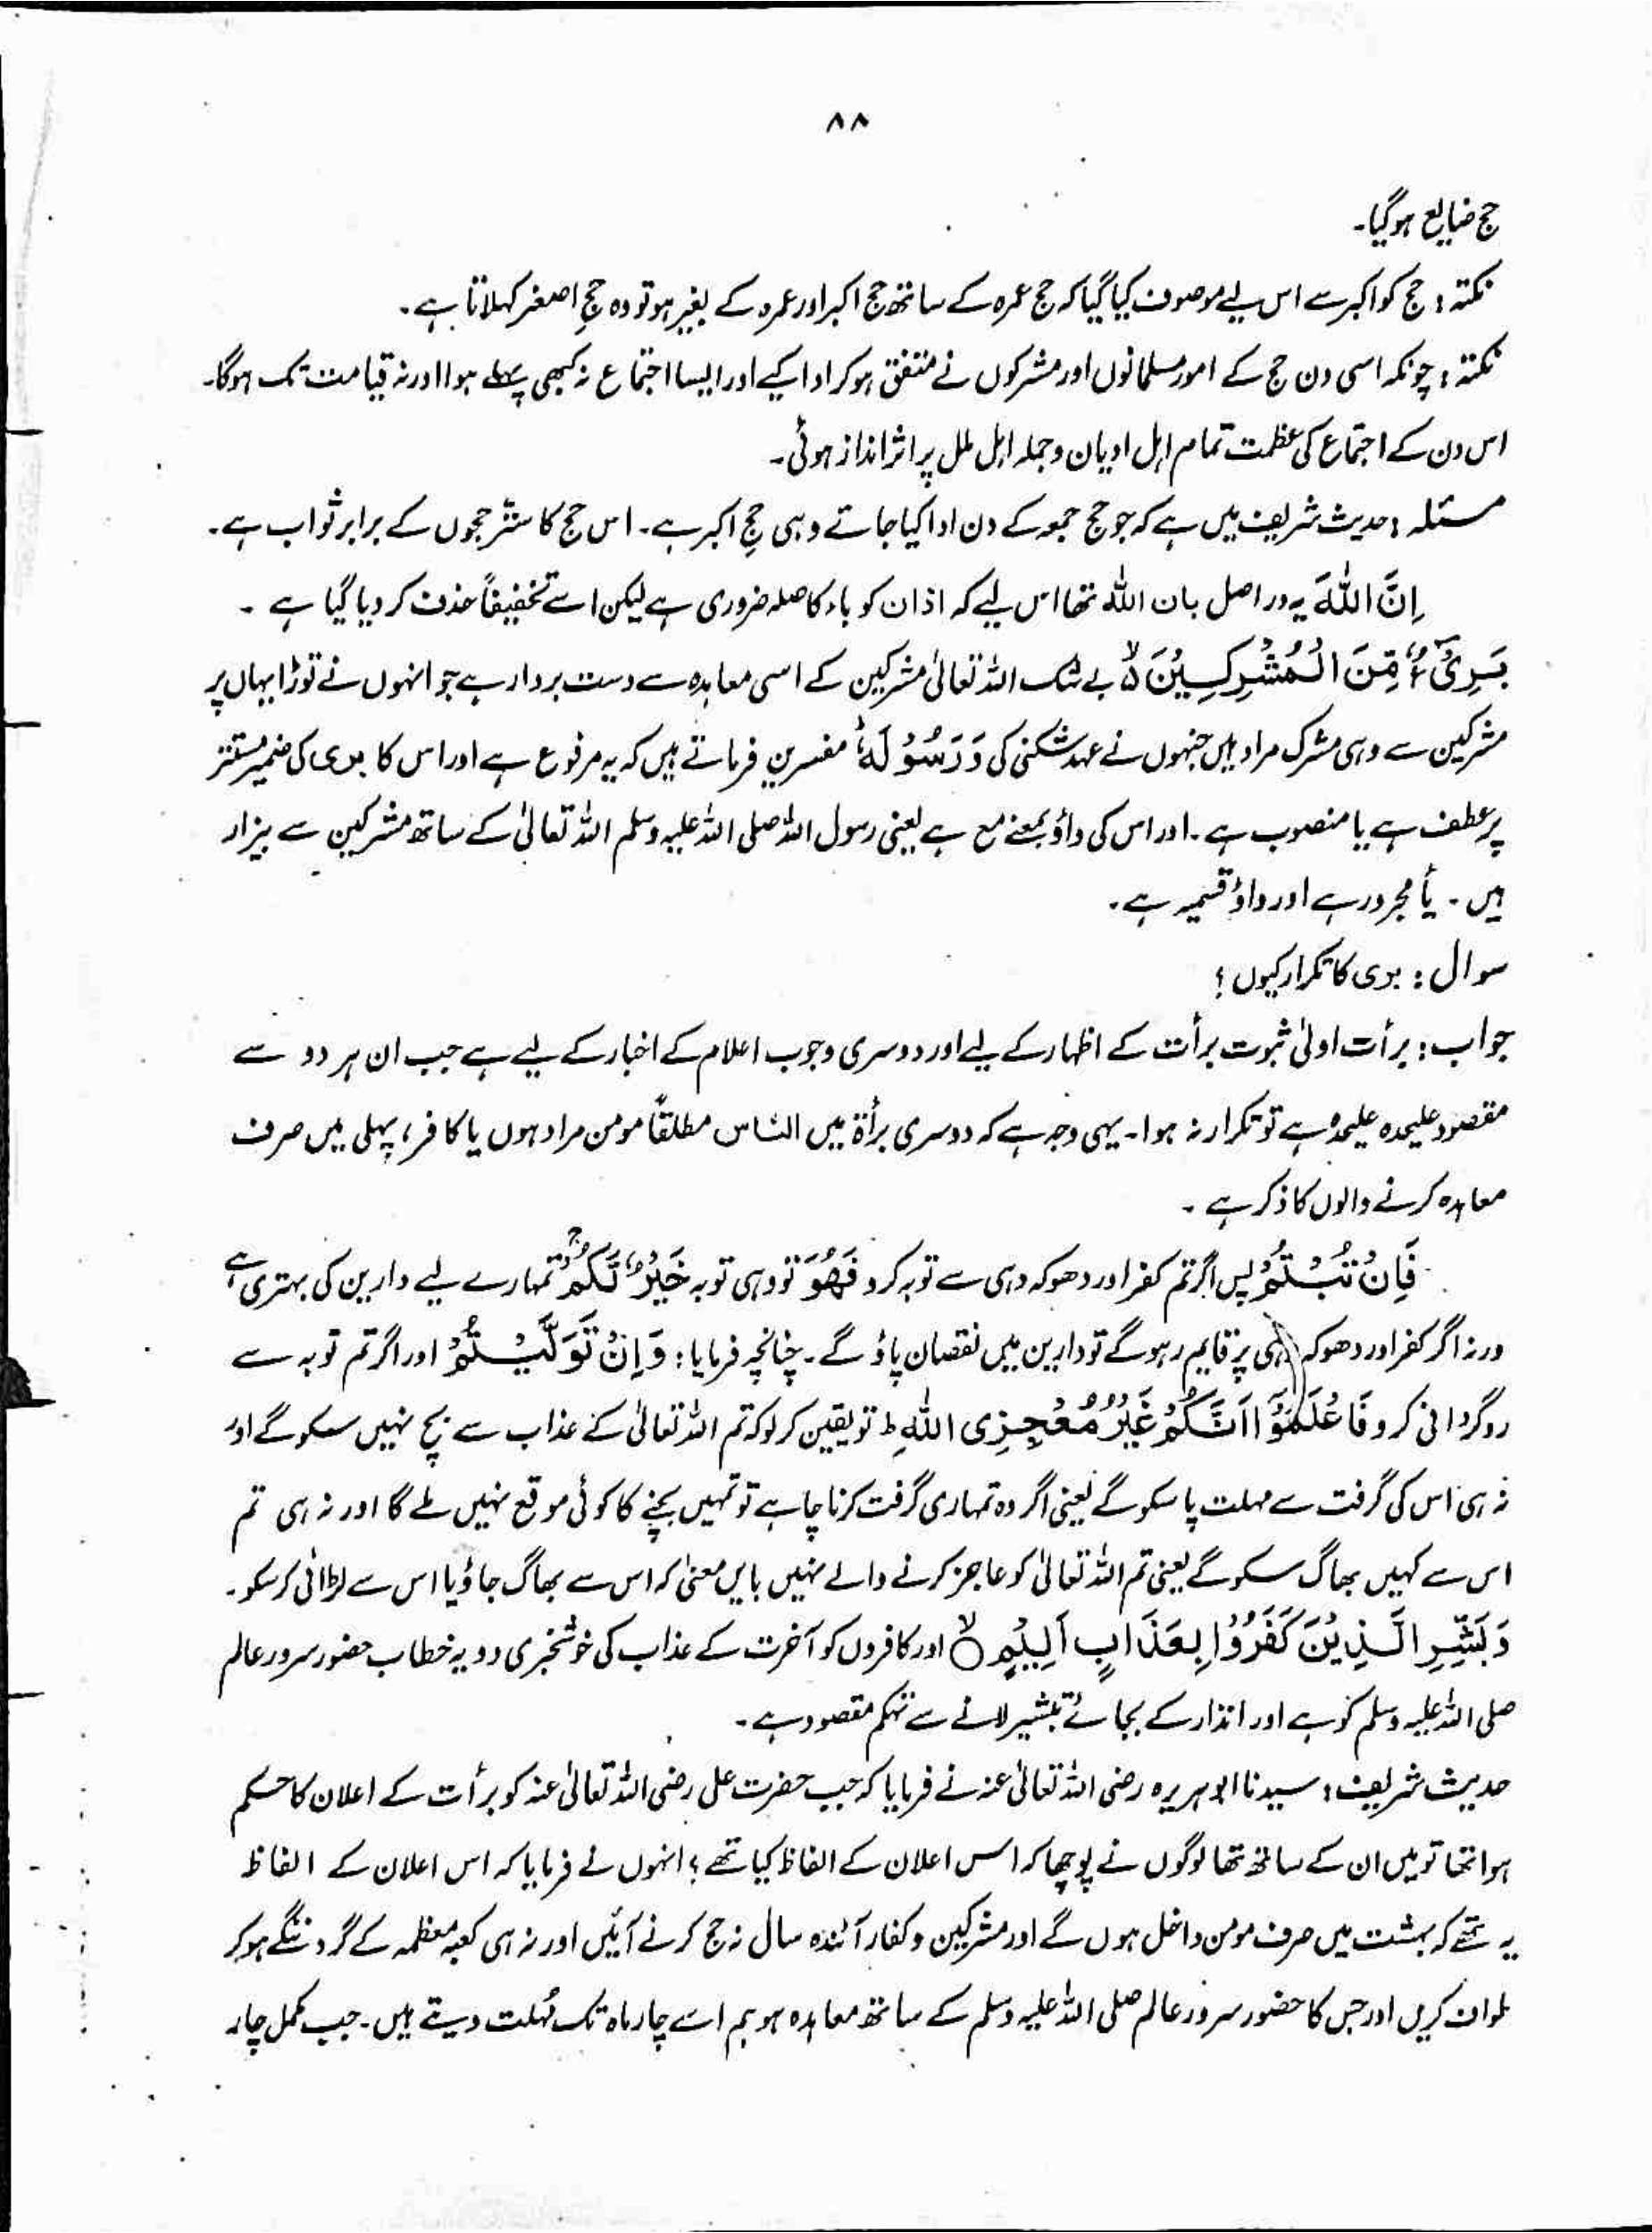 ۸۸
حج ضایع ہوگیا۔
نکتہ : حج کو اکبر سے اس لیے موصوف کیا گیا کہ حج عمرہ کے ساتھ حج اکبر اور عمرہ کے بغیر ہو تو وہ حجِ اصغر کہلاتا ہے۔
نکتہ : چونکہ اسی دن حج کے امور مسلمانوں اور مشرکوں نے متفق ہو کر ادا کیے اور ایسا اجتماع نہ کبھی پہلے ہوا اور نہ قیامت تک ہوگا۔
اس دن کے اجتماع کی عظمت تمام اہل ادیان و جملہ اہل ملل پر اثر انداز ہوئی۔
مسئلہ : حدیث شریف میں ہے کہ جو حج جمعہ کے دن ادا کیا جاتے وہی حجِ اکبر ہے۔ اس حج کا ستّر حجوں کے برابر ثواب ہے۔
اِنَّ اللّٰهَ یہ دراصل بان اللہ تھا اس لیے کہ اذان کو باء کا صلہ ضروری ہے لیکن اسے تخفیفاً حذف کر دیا گیا ہے ۔
بَرِیْٓءٌ مِّنَ الْمُشْرِکِیْنَ ۙ۬ بے شک اللہ تعالیٰ مشرکین کے اسی معاہدہ سے دست بردار ہے جو انہوں نے توڑا یہاں پر
مشرکین سے وہی مشرک مراد ہیں جنہوں نے عہد شکنی کی وَ رَسُوْلُهٗ ؕ مفسرین فرماتے ہیں کہ یہ مرفوع ہے اور اس کا بری کی ضمیر مستتر
پر عطف ہے یا منصوب ہے ۔ اور اس کی واؤ بمعنے مع ہے یعنی رسول اللہ صلی اللہ علیہ وسلم اللہ تعالیٰ کے ساتھ مشرکین سے بیزار
ہیں ۔ یا مجرور ہے اور واؤ قسمیہ ہے ۔
سوال : بری کا تکرار کیوں ؟
جواب : برأت اولیٰ ثبوت برأت کے اظہار کے لیے اور دوسری وجوب اعلام کے اخبار کے لیے ہے جب ان ہر دو سے
مقصود علیحدہ علیحدہ ہے تو تکرار نہ ہوا۔ یہی وجہ ہے کہ دوسری برأۃ میں الناس مطلقاً مومن مراد ہوں یا کافر، پہلی میں صرف
معاہدہ کرنے والوں کا ذکر ہے ۔
فَاِنْ تُبْتُمْ پس اگر تم کفر اور دھوکہ دہی سے توبہ کرو فَهُوَ تو وہی توبہ خَیْرٌ لَّکُمْ ۚ تمہارے لیے دارین کی بہتری ہے
ورنہ اگر کفر اور دھوکہ دہی پر قایم رہو گے تو دارین میں نقصان پاؤ گے ۔ چنانچہ فرمایا : وَاِنْ تَوَلَّیْتُمْ اور اگر تم توبہ سے
روگردانی کرو فَاعْلَمُوْٓا اَنَّکُمْ غَیْرُ مُعْجِزِی اللّٰهِ ط تو یقین کر لو کہ تم اللہ تعالیٰ کے عذاب سے بچ نہیں سکو گے اور
نہ ہی اس کی گرفت سے مہلت پا سکو گے یعنی اگر وہ تمہاری گرفت کرنا چاہے تو تمہیں بچنے کا کوئی موقع نہیں ملے گا اور نہ ہی تم
اس سے کہیں بھاگ سکو گے یعنی تم اللہ تعالیٰ کو عاجز کرنے والے نہیں بایں معنیٰ کہ اس سے بھاگ جاؤ یا اس سے لڑائی کر سکو ۔
وَبَشِّرِ الَّذِیْنَ کَفَرُوْا بِعَذَابٍ اَلِیْمٍ ۙ اور کافروں کو آخرت کے عذاب کی خوشخبری دو یہ خطاب حضور سرور عالم
صلی اللہ علیہ وسلم کو ہے اور انذار کے بجائے تبشیر لانے سے تہکم مقصود ہے ۔
حدیث شریف : سیدنا ابوہریرہ رضی اللہ تعالیٰ عنہ نے فرمایا کہ جب حضرت علی رضی اللہ تعالیٰ عنہ کو برأت کے اعلان کا حکم
ہوا تھا تو میں ان کے ساتھ تھا لوگوں نے پوچھا کہ اس اعلان کے الفاظ کیا تھے ؟ انہوں نے فرمایا کہ اس اعلان کے الفاظ
یہ تھے کہ بہشت میں صرف مومن داخل ہوں گے اور مشرکین و کفار آئندہ سال نہ حج کرنے آئیں اور نہ ہی کعبہ معظمہ کے گرد ننگے ہو کر
طواف کریں اور جس کا حضور سرور عالم صلی اللہ علیہ وسلم کے ساتھ معاہدہ ہو ہم اسے چار ماہ تک مُہلت دیتے ہیں ۔ جب مکمل چار